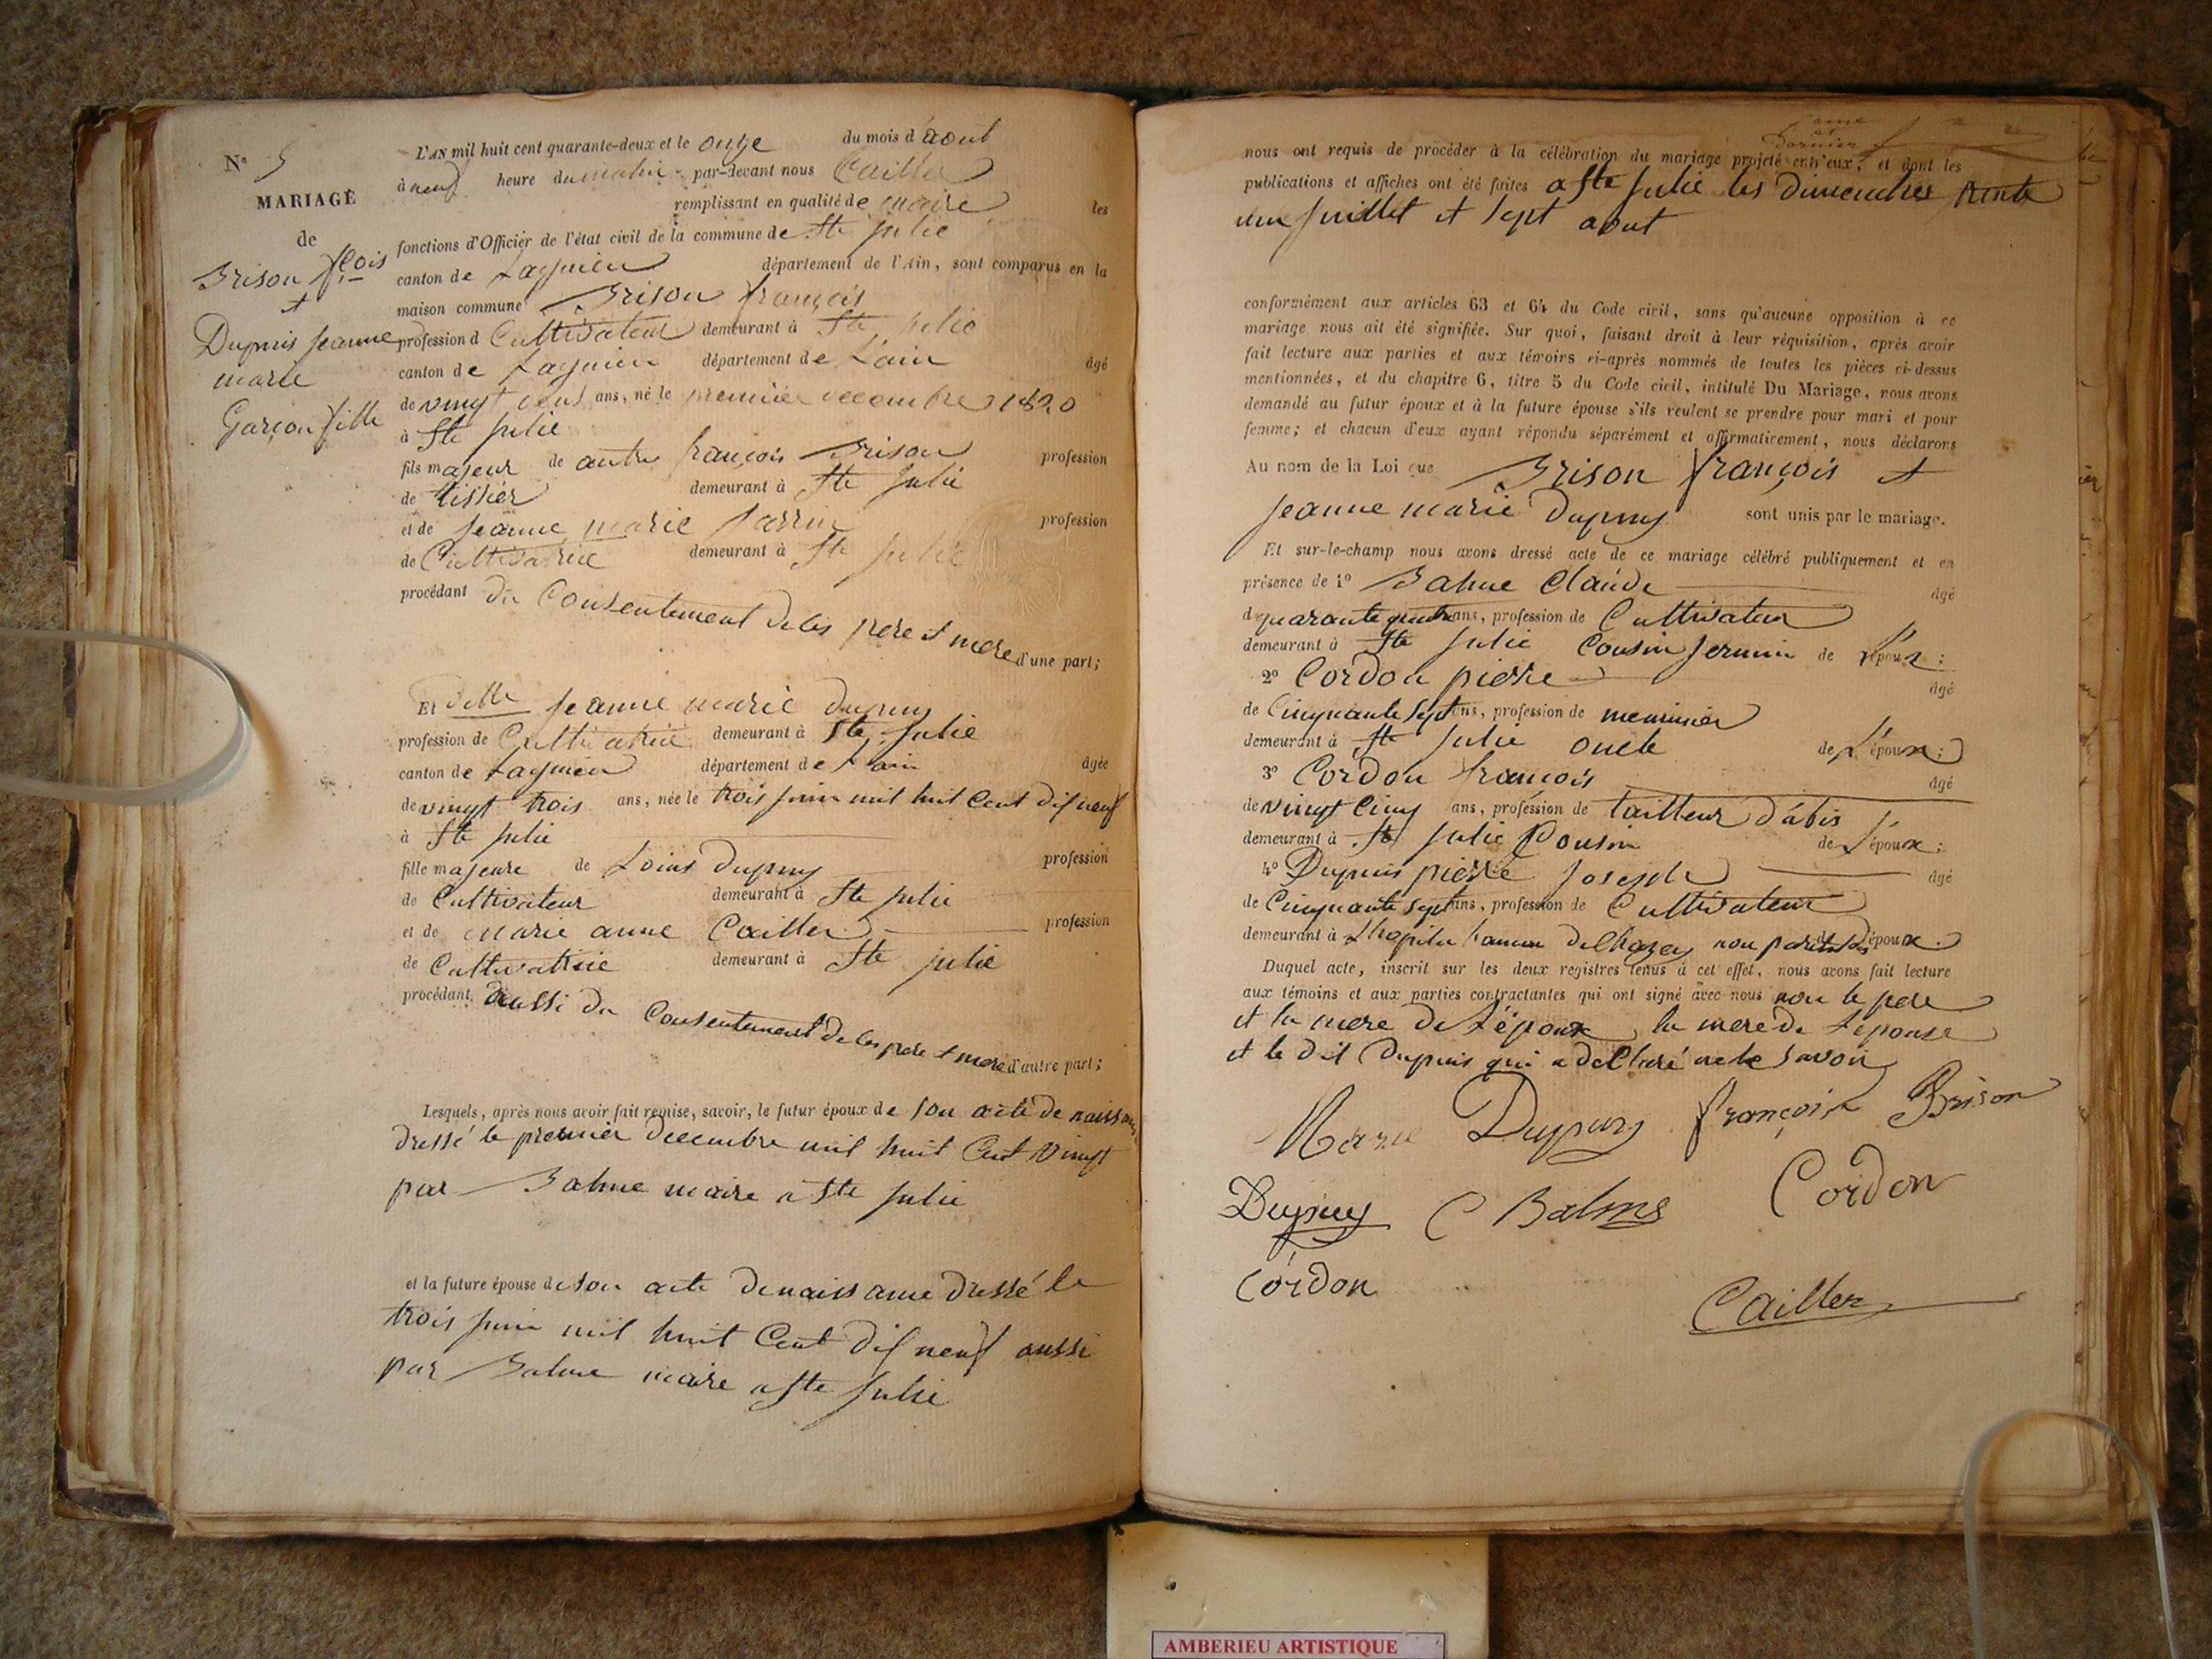 N° 5
MARIAGE
de
Brison fçois
et
Dupuis jeanne
marie
Garçon fille
L'AN mil huit cent quarante-deux et le onze du mois d'aout
à neuf heure du matin par-devant nous Cailler
remplissant en qualité de maire les
fonctions d'Officier de l'état civil de la commune de Ste julie
canton de Lagnieu département de l'Ain, sont comparus en la
maison commune Brison françois
profession d Cultivateur demeurant à Ste julie
canton de Lagnieu département de L'ain âgé
de vingt deux ans, né le premier decembre 1820
à Ste julie
fils majeur de autre françois Brison profession
de tissier demeurant à Ste julie
et de jeanne marie profession
de Cultivatrice demeurant à Ste julie
procédant du Consentement de ses pere et mere d'une part;
Et delle jeanne marie dupuy
profession de Cultivatrice demeurant à Ste julie
canton de Lagnieu département de L'ain âgée
de vingt trois ans, née le trois juin mil huit Cent dix neuf
à Ste julie
fille majeure de Louis dupuy profession
de Cultivateur demeurant à Ste julie
et de marie anne Cailler profession
de Cultivatrice demeurant à Ste julie
procédant aussi du Consentement de ses pere et mere d'autre part;
Lesquels, après nous avoir fait remise, savoir, le futur époux de son acte de naissance
dressé le premier decembre mil huit Cent vingt
par Balme maire a Ste julie
et la future épouse de son acte de naissance dressé le
trois juin mil huit Cent dix neuf aussi
par Balme maire a Ste julie
nous ont requis de procéder à la célébration du mariage projeté entr'eux, et dont les
publications et affiches ont été faites a Ste julie les dimenches trente
un juillet et sept aout
conformément aux articles 63 et 64 du Code civil, sans qu'aucune opposition à ce
mariage nous ait été signifiée. Sur quoi, faisant droit à leur réquisition, après avoir
fait lecture aux parties et aux témoins ci-après nommés de toutes les pièces ci-dessus
mentionnées, et du chapitre 6, titre 5 du Code civil, intitulé Du Mariage, nous avons
demandé au futur époux et à la future épouse s'ils veulent se prendre pour mari et pour
femme; et chacun d'eux ayant répondu séparément et affirmativement, nous déclarons
Au nom de la Loi que Brison françois et
jeanne marie dupuy sont unis par le mariage.
Et sur-le-champ nous avons dressé acte de ce mariage célébré publiquement et en
présence de 1° Balme Claude âgé
d quarante quatre ans, profession de Cultivateur
demeurant à Ste julie Cousin Jermin de L'époux;
2° Cordon pierre âgé
de Cinquante sept ans, profession de menuisier
demeurant à Ste julie oncle de L'époux;
3° Cordon françois âgé
de vingt Cinq ans, profession de tailleur d'abis
demeurant à Ste julie Cousin de L'époux;
4° Dupuis pierre joseph âgé
de Cinquante sept ans, profession de Cultivateur
demeurant à de Chazey non parent des époux.
Duquel acte, inscrit sur les deux registres tenus à cet effet, nous avons fait lecture
aux témoins et aux parties contractantes qui ont signé avec nous non le pere
et la mere de L'époux, la mere de L'epouse
et le dit Dupuis qui a declaré ne le savoir
Marie Dupuy françois Brison
Dupuy C Balme Cordon
Cordon
Cailler
AMBERIEU ARTISTIQUE